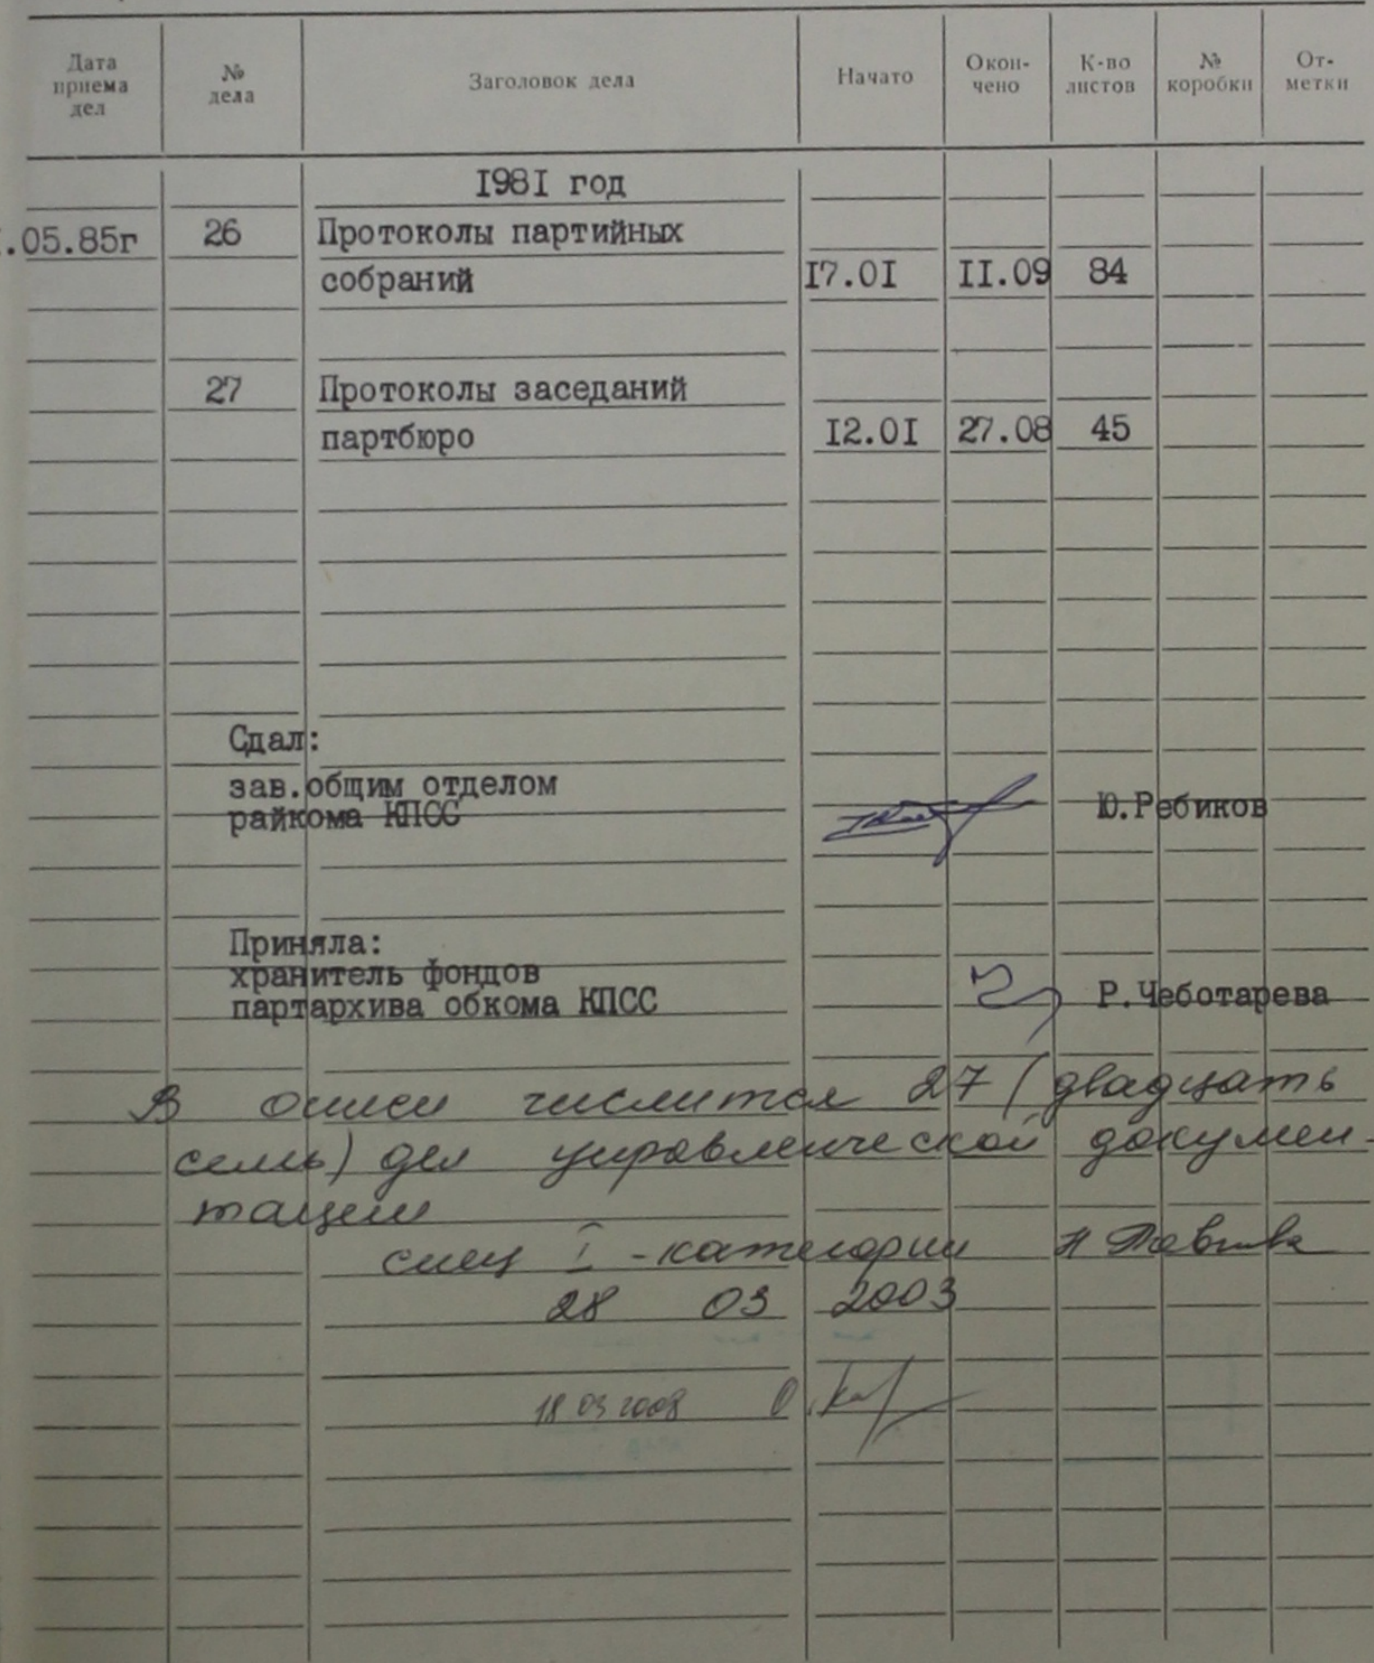 Дата приема дел № дела Заголовок дела Начато Окончено К-во листов № коробки Отметки
I98I год
.05.85г 26 Протоколы партийных
собраний I7.0I II.09 84
27 Протоколы заседаний
партбюро I2.0I 27.08 45
Сдал:
зав.общим отделом
райкома КПСС Ю.Ребиков
Приняла:
хранитель фондов
партархива обкома КПСС Р.Чеботарева
В описи числится 27 (двадцать
семь) дел управленческой докумен-
тации
спец I-категории
28 03 2003
18 03 2008